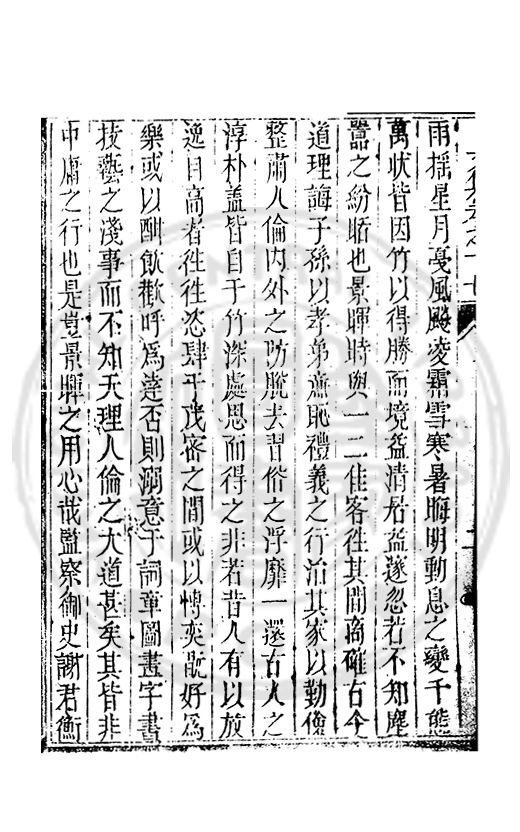 雨揺星月憂風颸凌霜雪寒暑晦明動息之變千態
萬狀皆因竹以得勝而境益清居益邃忽若不知塵
囂之紛聒也景暉時與一二佳客徃其間商確古今
道理誨子孫以孝弟廉恥禮義之行治其家以勤儉
整肅人倫内外之防脫去習俗之浮靡一還古人之
淳朴盖皆自于竹深處思而得之非若昔人有以放
逸自高者徃徃恣肆于茂密之間或以愽奕戱好爲
樂或以酣飲歡呼爲達否則溺意于詞章圖畫字書
技藝之淺事而不知天理人倫之大道甚矣其皆非
中庸之行也是豈景暉之用心哉監察御史謝君衡